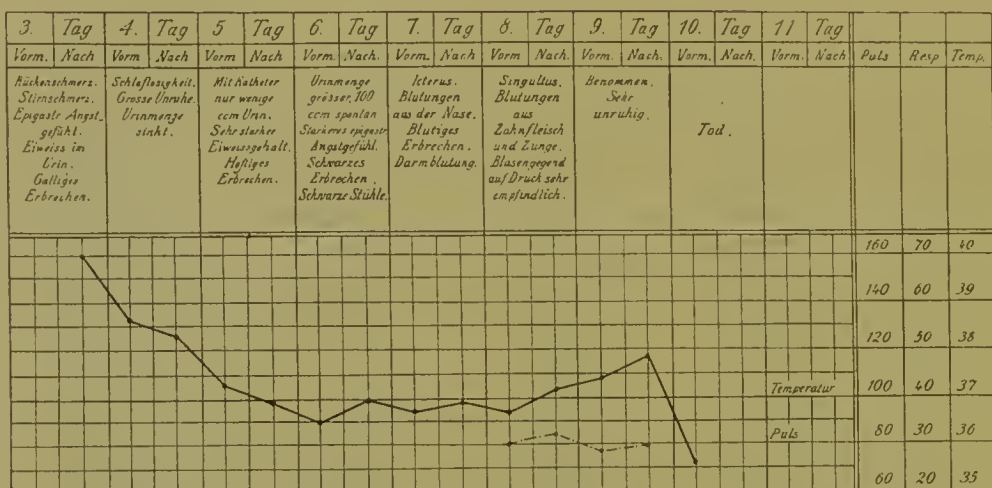 3. Tag 4. Tag 5 Tag 6. Tag 7. Tag 8. Tag 9. Tag 10. Tag 11 Tag
Vorm. Nach. Vorm Nach Vorm Nach Vorm. Nach. Vorm. Nach. Vorm. Nach. Vorm. Nach. Vorm. Nach. Vorm. Nach. Puls Resp Temp.
Rückenschmerz.
Stirnschmerz.
Epigastr Angst-
gefühl.
Eiweiss im
Urin.
Galliges
Erbrechen.
Schlaflosigkeit.
Grosse Unruhe.
Urinmenge
sinkt.
Mit Katheter
nur wenige
ccm Urin.
Sehr starker
Eiweissgehalt.
Heftiges
Erbrechen.
Urinmenge
grösser, 100
ccm spontan
Starkeres epigastr.
Angstgefühl.
Schwarzes
Erbrechen.
Schwarze Stühle.
Icterus.
Blutungen
aus der Nase.
Blutiges
Erbrechen.
Darmblutung.
Singultus.
Blutungen
aus
Zahnfleisch
und Zunge.
Blasengegend
auf Druck sehr
empfindlich.
Benommen.
Sehr
unruhig.
Tod.
160 70 40
140 60 39
120 50 38
Temperatur 100 40 37
Puls 80 30 36
60 20 35